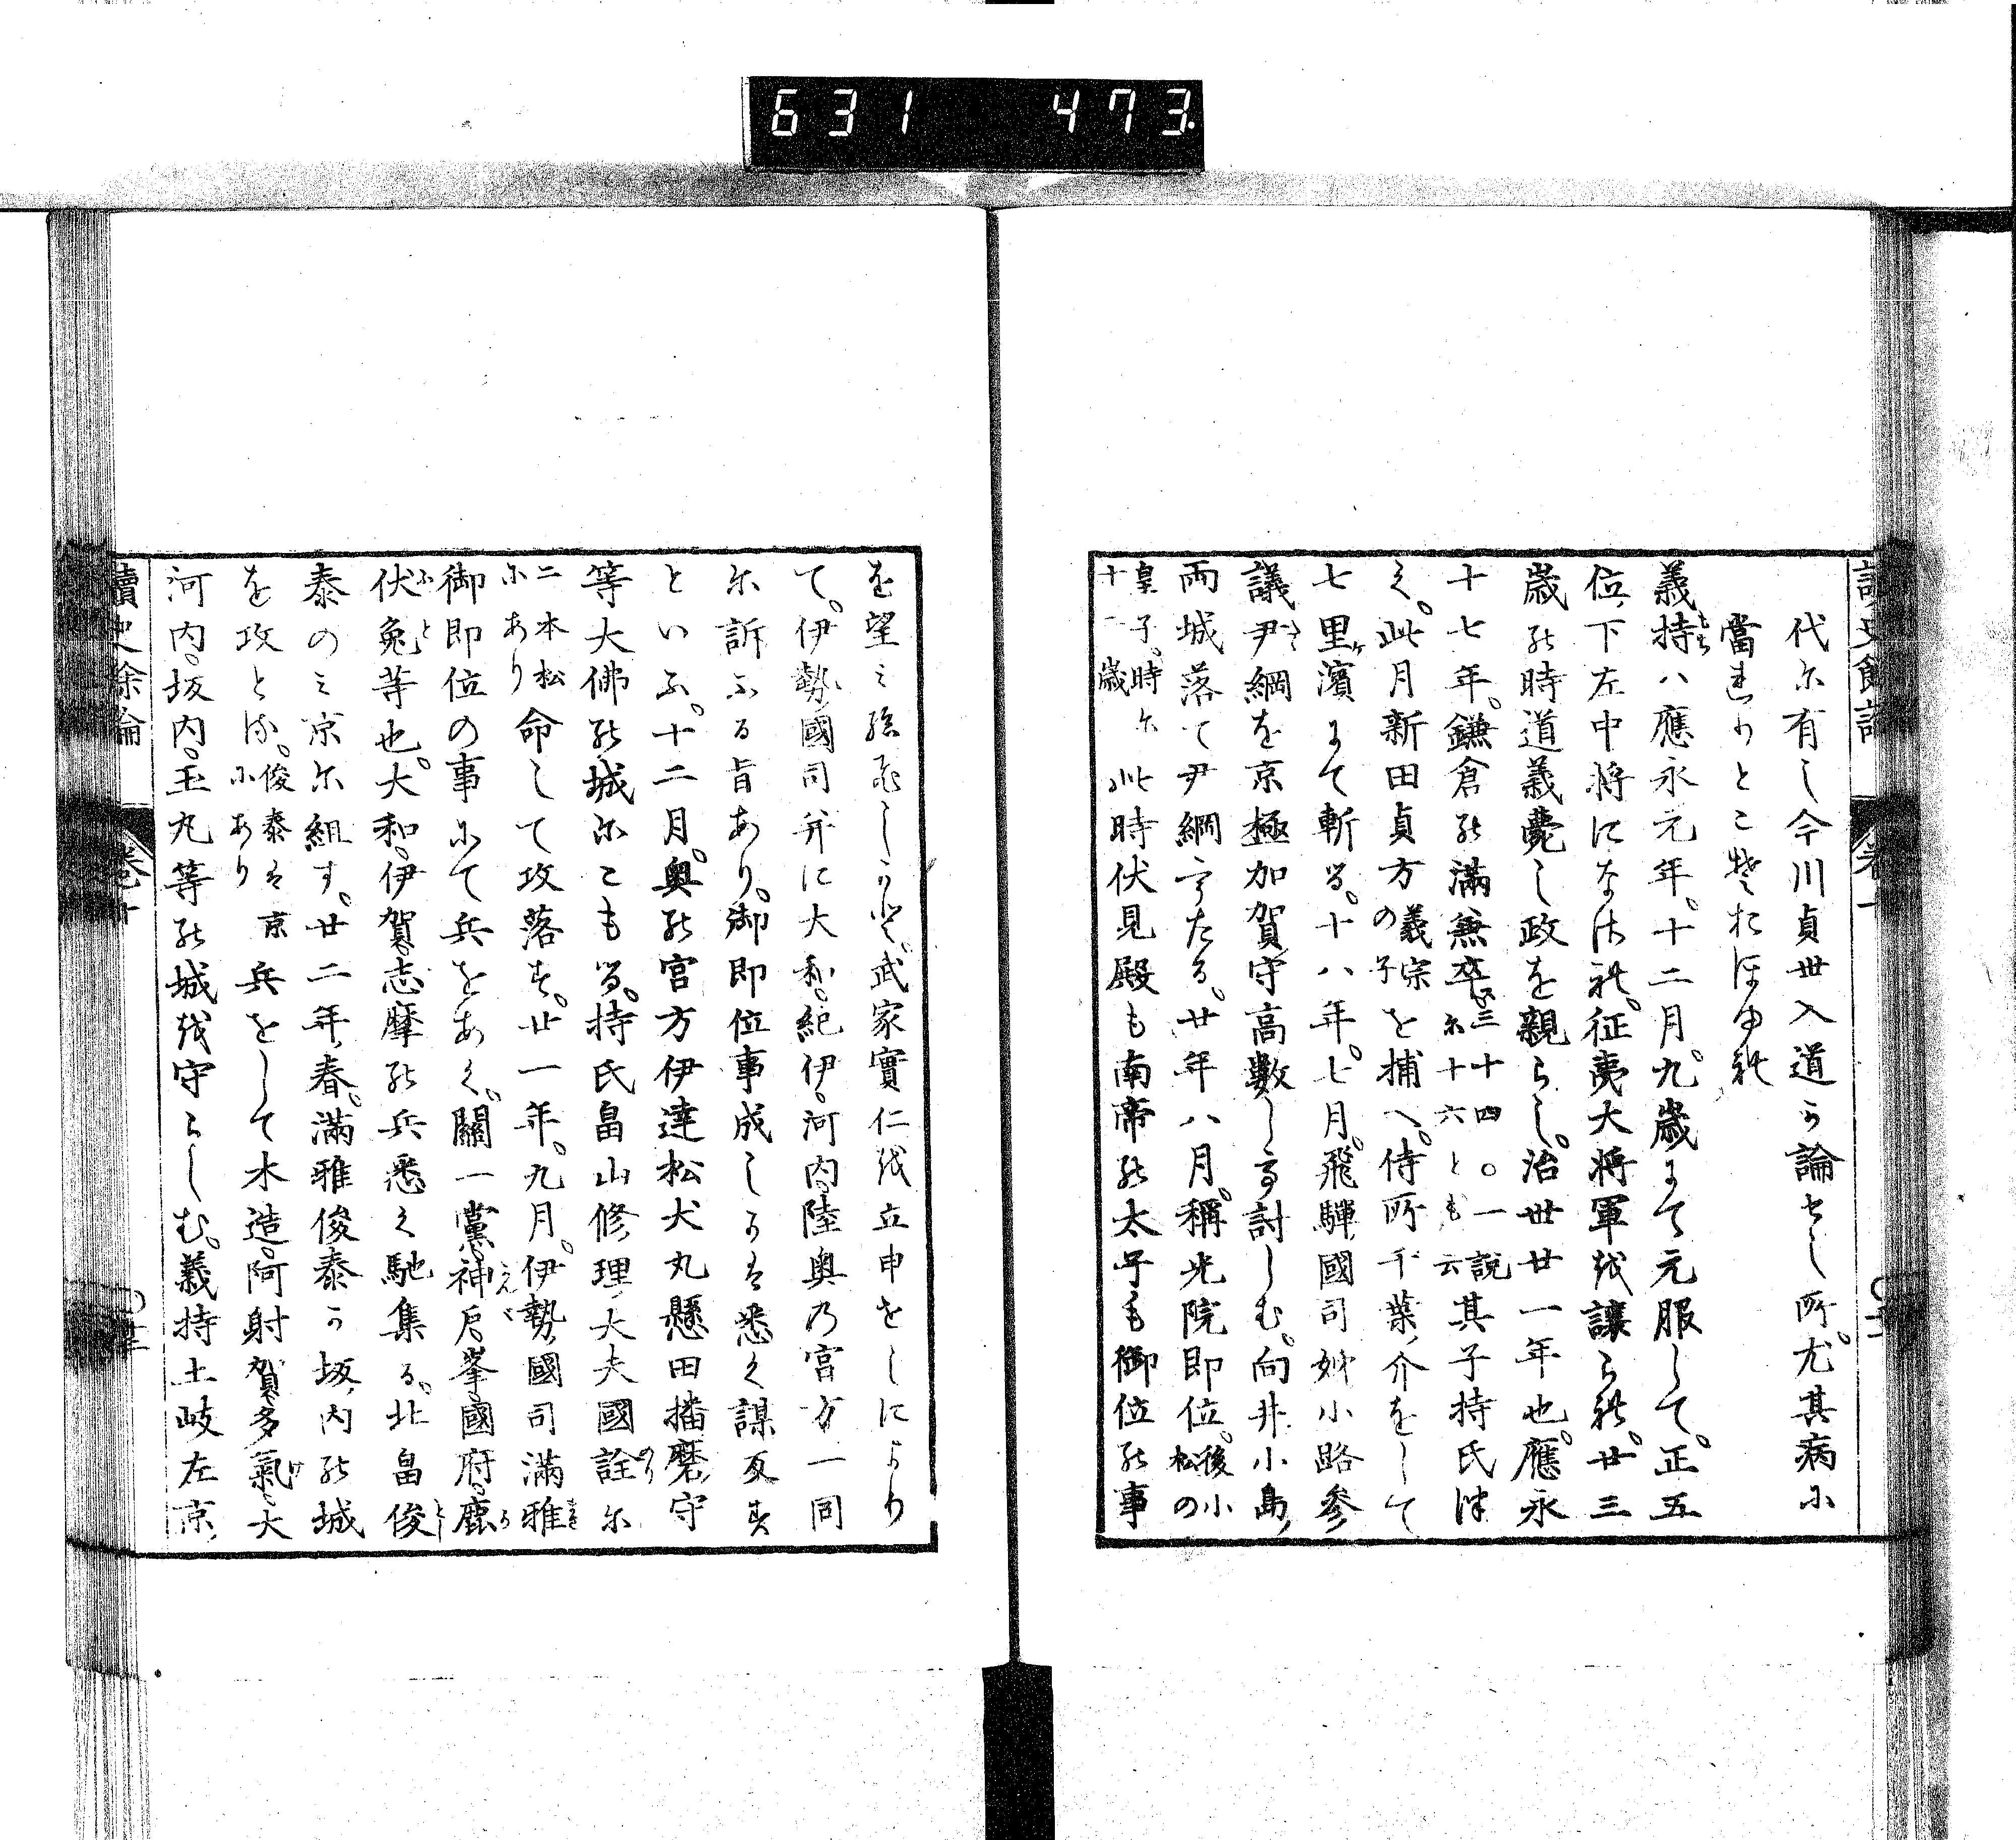 631 473
代尓有し今川貞世入道可論せし所。尤其病尓
當れりとこそおほゆれ
義持ハ應永元年。十二月。九歳尓て元服して。正五
位下左中将になされ。征夷大将軍越讓られ。廿三
歳能時道義薨し政を親らし。治世廿一年也。應永
十七年。鎌倉能滿兼卒三十四。○一説尓十六とも云其子持氏津
く。此月新田貞方義宗の子を捕へ。侍所千葉介をして
七里濱尓て斬る。十八年。七月。飛騨國司姉小路参
議尹綱を京極加賀守高數して討しむ。向井小島
両城落て尹綱うたる。廿年八月。稱光院即位。後小松の
皇子。時尓十一歳此時伏見殿も南帝能太子も御位能事
を望み給ひしかと。武家實仁越立申せしにより
て。伊勢國司并に大和。紀伊。河内陸奥乃宮方一同
尓訴ふる旨あり。御即位事成しか者悉く謀反す
といふ。十二月。奥能宮方伊達松犬丸懸田播磨守
等大佛能城尓こもる。持氏畠山修理大夫國詮尓
二本松尓あり命して攻落す。廿一年。九月。伊勢國司滿雅
御即位の事尓て兵をあく。關一黨。神戸。峯。國府。鹿
伏兔等也。大和。伊賀。志摩能兵悉く馳集る。北畠俊
泰のミ京尓組す。廿二年春。滿雅俊泰可坂内能城
を攻とる。俊泰者京尓あり京兵をして木造。阿射賀。多氣。大
河内。坂内。玉丸等能城越守らしむ。義持土岐左京
讀史餘論 卷十